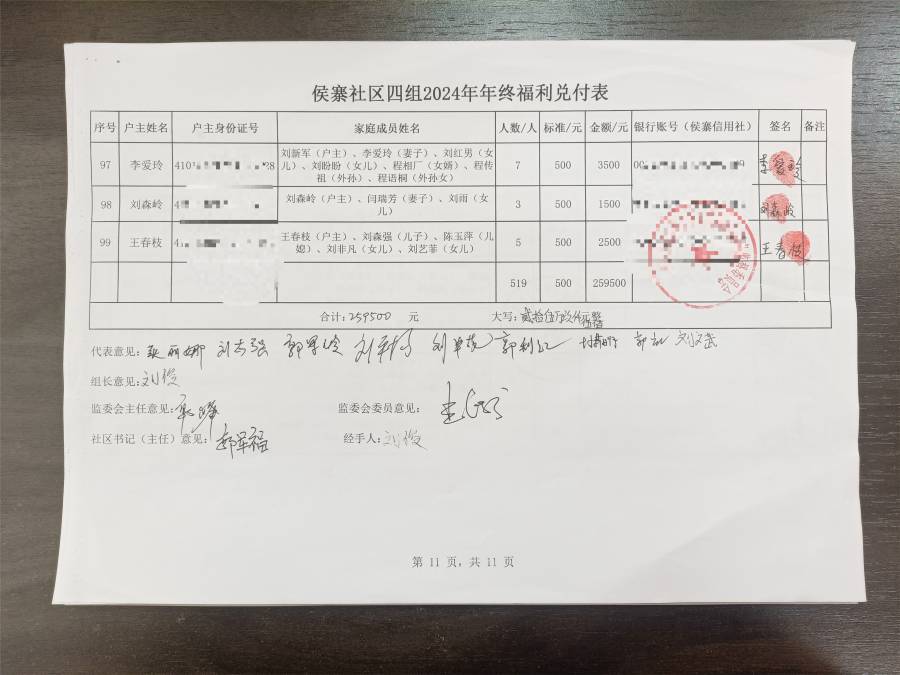 侯寨社区四组2024年年终福利兑付表
序号 户主姓名 户主身份证号 家庭成员姓名 人数/人 标准/元 金额/元 银行账号（侯寨信用社） 签名 备注
97 李爱玲 410 28 刘新军（户主）、李爱玲（妻子）、刘红男（女儿）、刘盼盼（女儿）、程相厂（女婿）、程传祖（外孙）、程语桐（外孙女） 7 500 3500 00 9 李爱玲
98 刘森岭 4 刘森岭（户主）、闫瑞芳（妻子）、刘雨（女儿） 3 500 1500 刘森岭
99 王春枝 4 王春枝（户主）、刘森强（儿子）、陈玉萍（儿媳）、刘非凡（女儿）、刘艺菲（女儿） 5 500 2500 王春枝
519 500 259500
合计：259500 元 大写：贰拾伍万玖仟伍佰元整
代表意见： 刘志强 郭军岭 郭利红 刘文武
组长意见：刘俊
监委会主任意见： 监委会委员意见：
社区书记（主任）意见：郭军福 经手人：刘俊
第 11 页，共 11 页